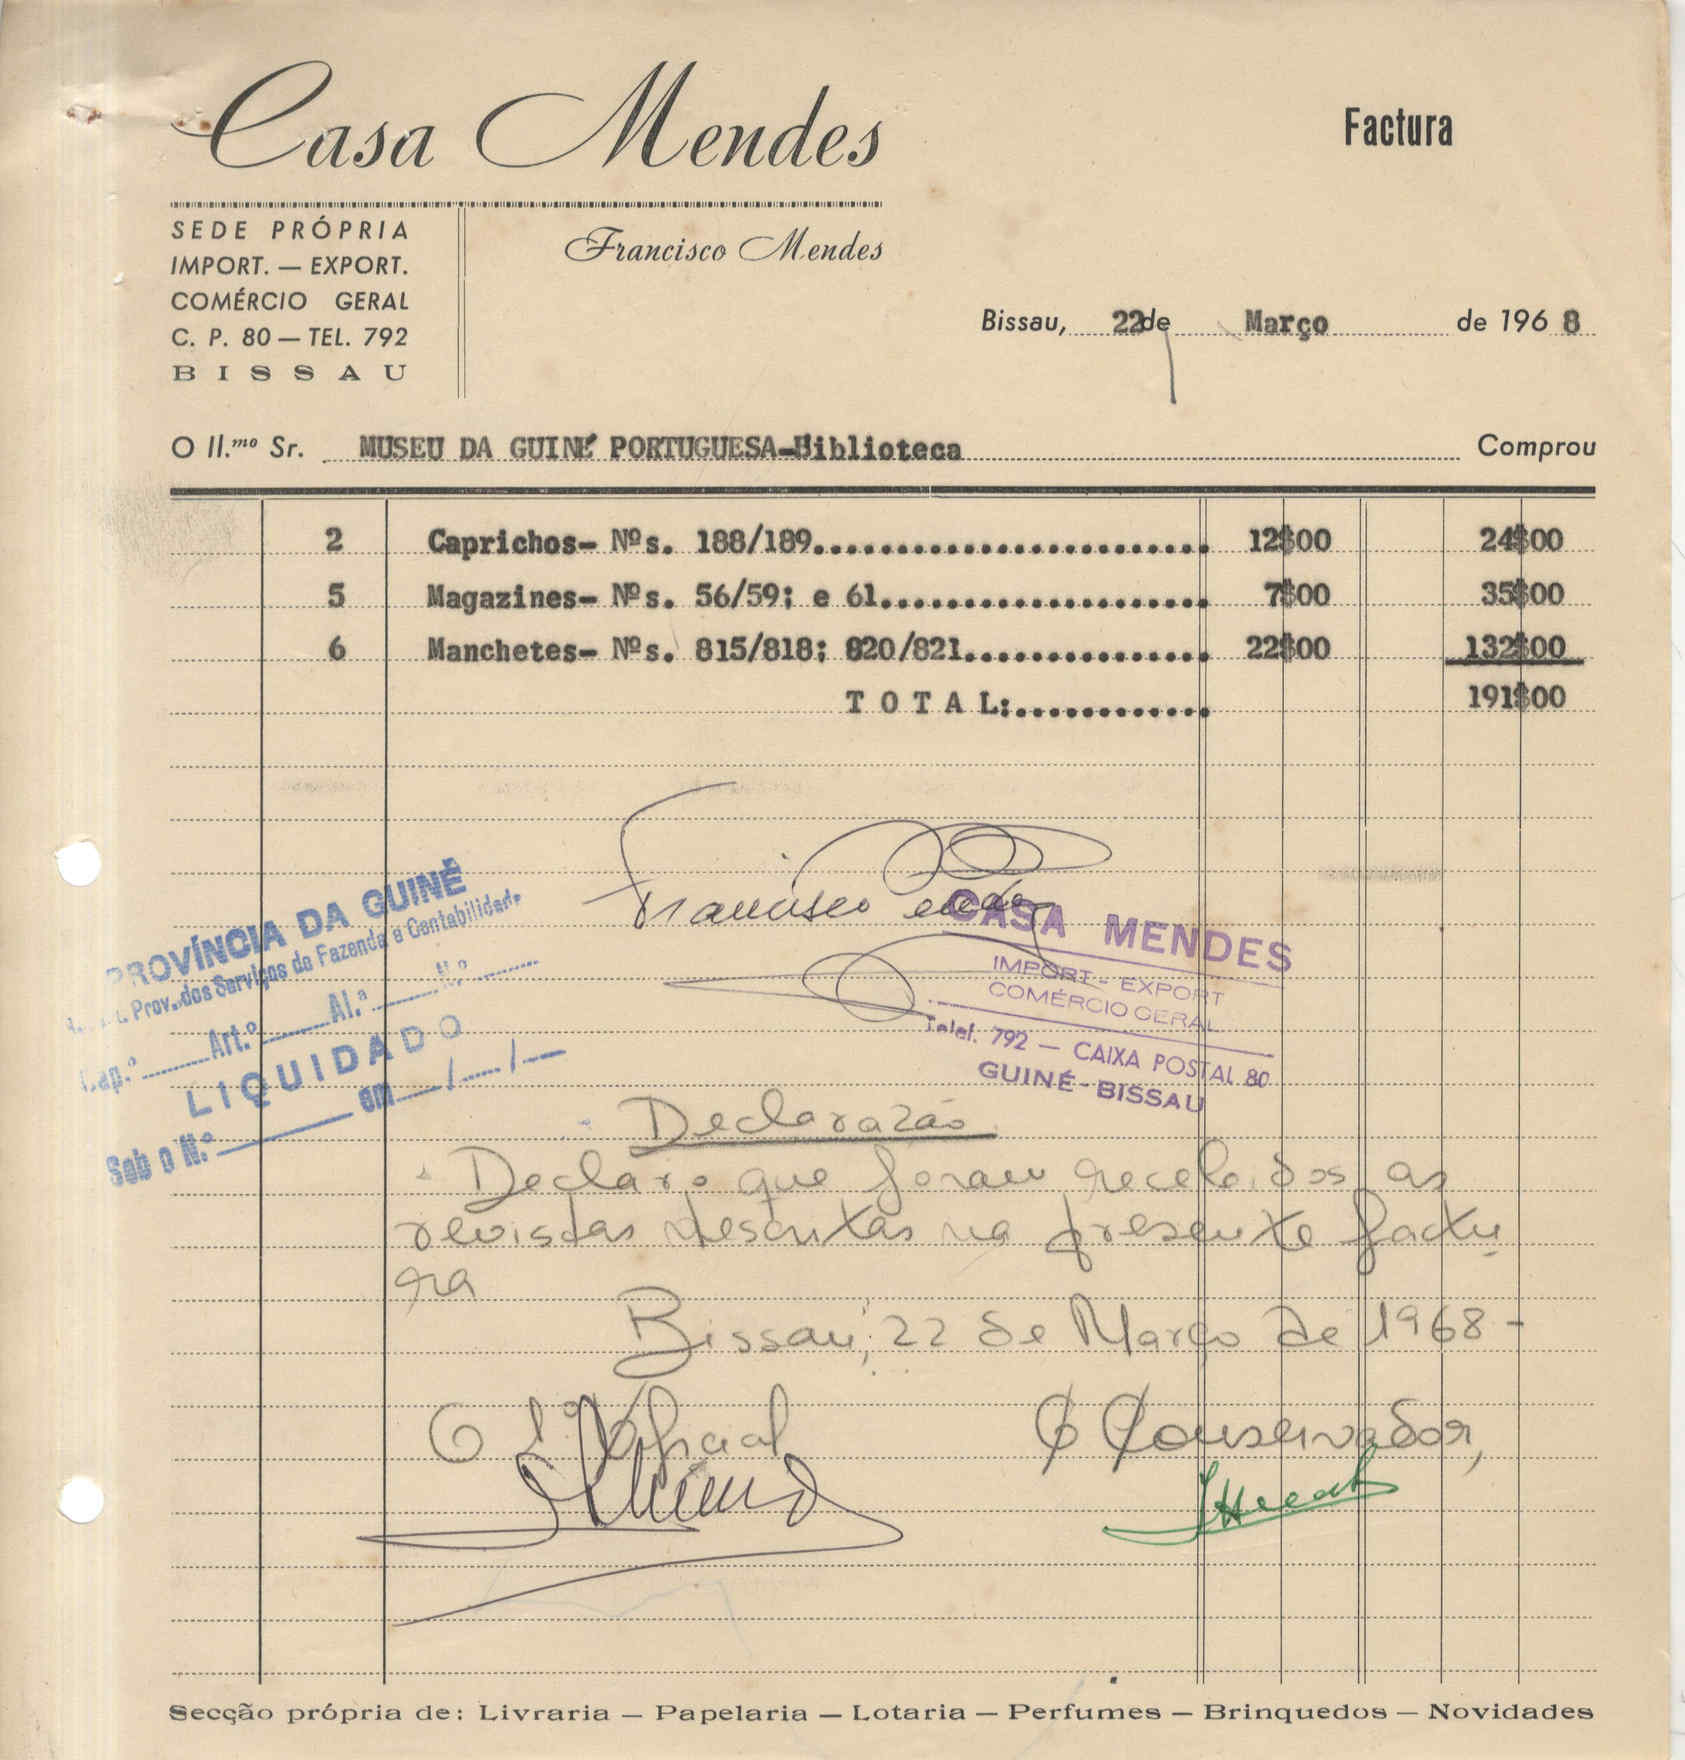 Casa Mendes
Factura
SEDE PRÓPRIA
IMPORT. — EXPORT.
COMÉRCIO GERAL
C. P. 80 — TEL. 792
BISSAU
Francisco Mendes
Bissau, 22 de Março de 1968
O Il.mo Sr. MUSEU DA GUINÉ PORTUGUESA-Biblioteca Comprou
2 Caprichos- Nºs. 188/189........................ 12$00 24$00
5 Magazines- Nºs. 56/59; e 61.................... 7$00 35$00
6 Manchetes- Nºs. 815/818; 820/821............... 22$00 132$00
T O T A L:............ 191$00
Francisco
CASA MENDES
IMPORT - EXPORT
COMÉRCIO GERAL
Telef. 792 — CAIXA POSTAL 80
GUINÉ-BISSAU
PROVÍNCIA DA GUINÉ
Prov. dos Serviços de Fazenda e Contabilidade
Cap.º Art.º Al.ª N.º
LIQUIDADO
Sob o N.º em / /
Declarazão
Declaro que foram recebidos as
revistas descritas na presente factu
ra
Bissau, 22 de Março de 1968-
O 1.º Oficial
O Conservador,
Secção própria de: Livraria — Papelaria — Lotaria — Perfumes — Brinquedos — Novidades